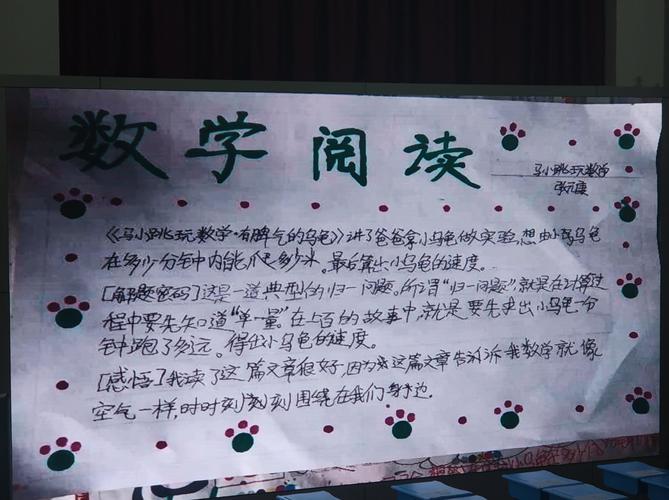 数学阅读
马小跳玩数学
张元康
《马小跳玩数学·有脾气的乌龟》讲了爸爸拿小乌龟做实验,想由小乌龟
在多少分钟内能爬多少米。最后算出小乌龟的速度。
[解题密码]这是一道典型的归一问题。所谓"归一问题"就是在计算过
程中要先知道"单一量"。在上面的故事中就是要先求出小乌龟一分
钟跑了多远。得出小乌龟的速度。
[感悟]我读了这篇文章很好,因为这篇文章告诉我数学就像
空气一样,时时刻刻围绕在我们身边.